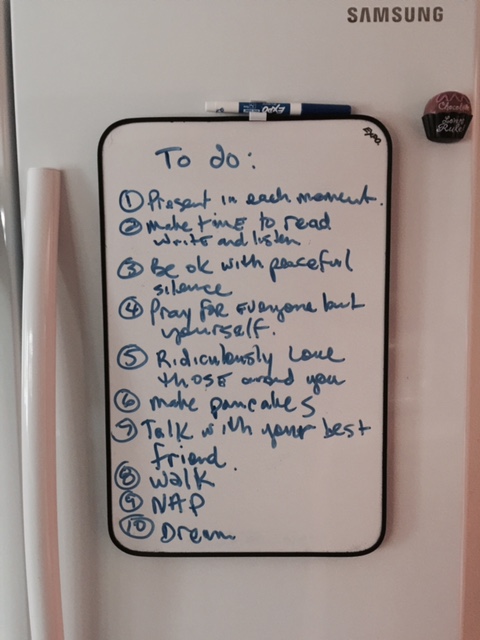 SAMSUNG
EXPO
Chocolate
Lovers
Rule!
EXPO
To do:
① Present in each moment.
② make time to read
write and listen
③ Be ok with peaceful
silence
④ Pray for everyone but
yourself.
⑤ Ridiculously Love
those around you
⑥ make pancakes
⑦ Talk with your best
friend.
⑧ walk
⑨ NAP
⑩ Dream.